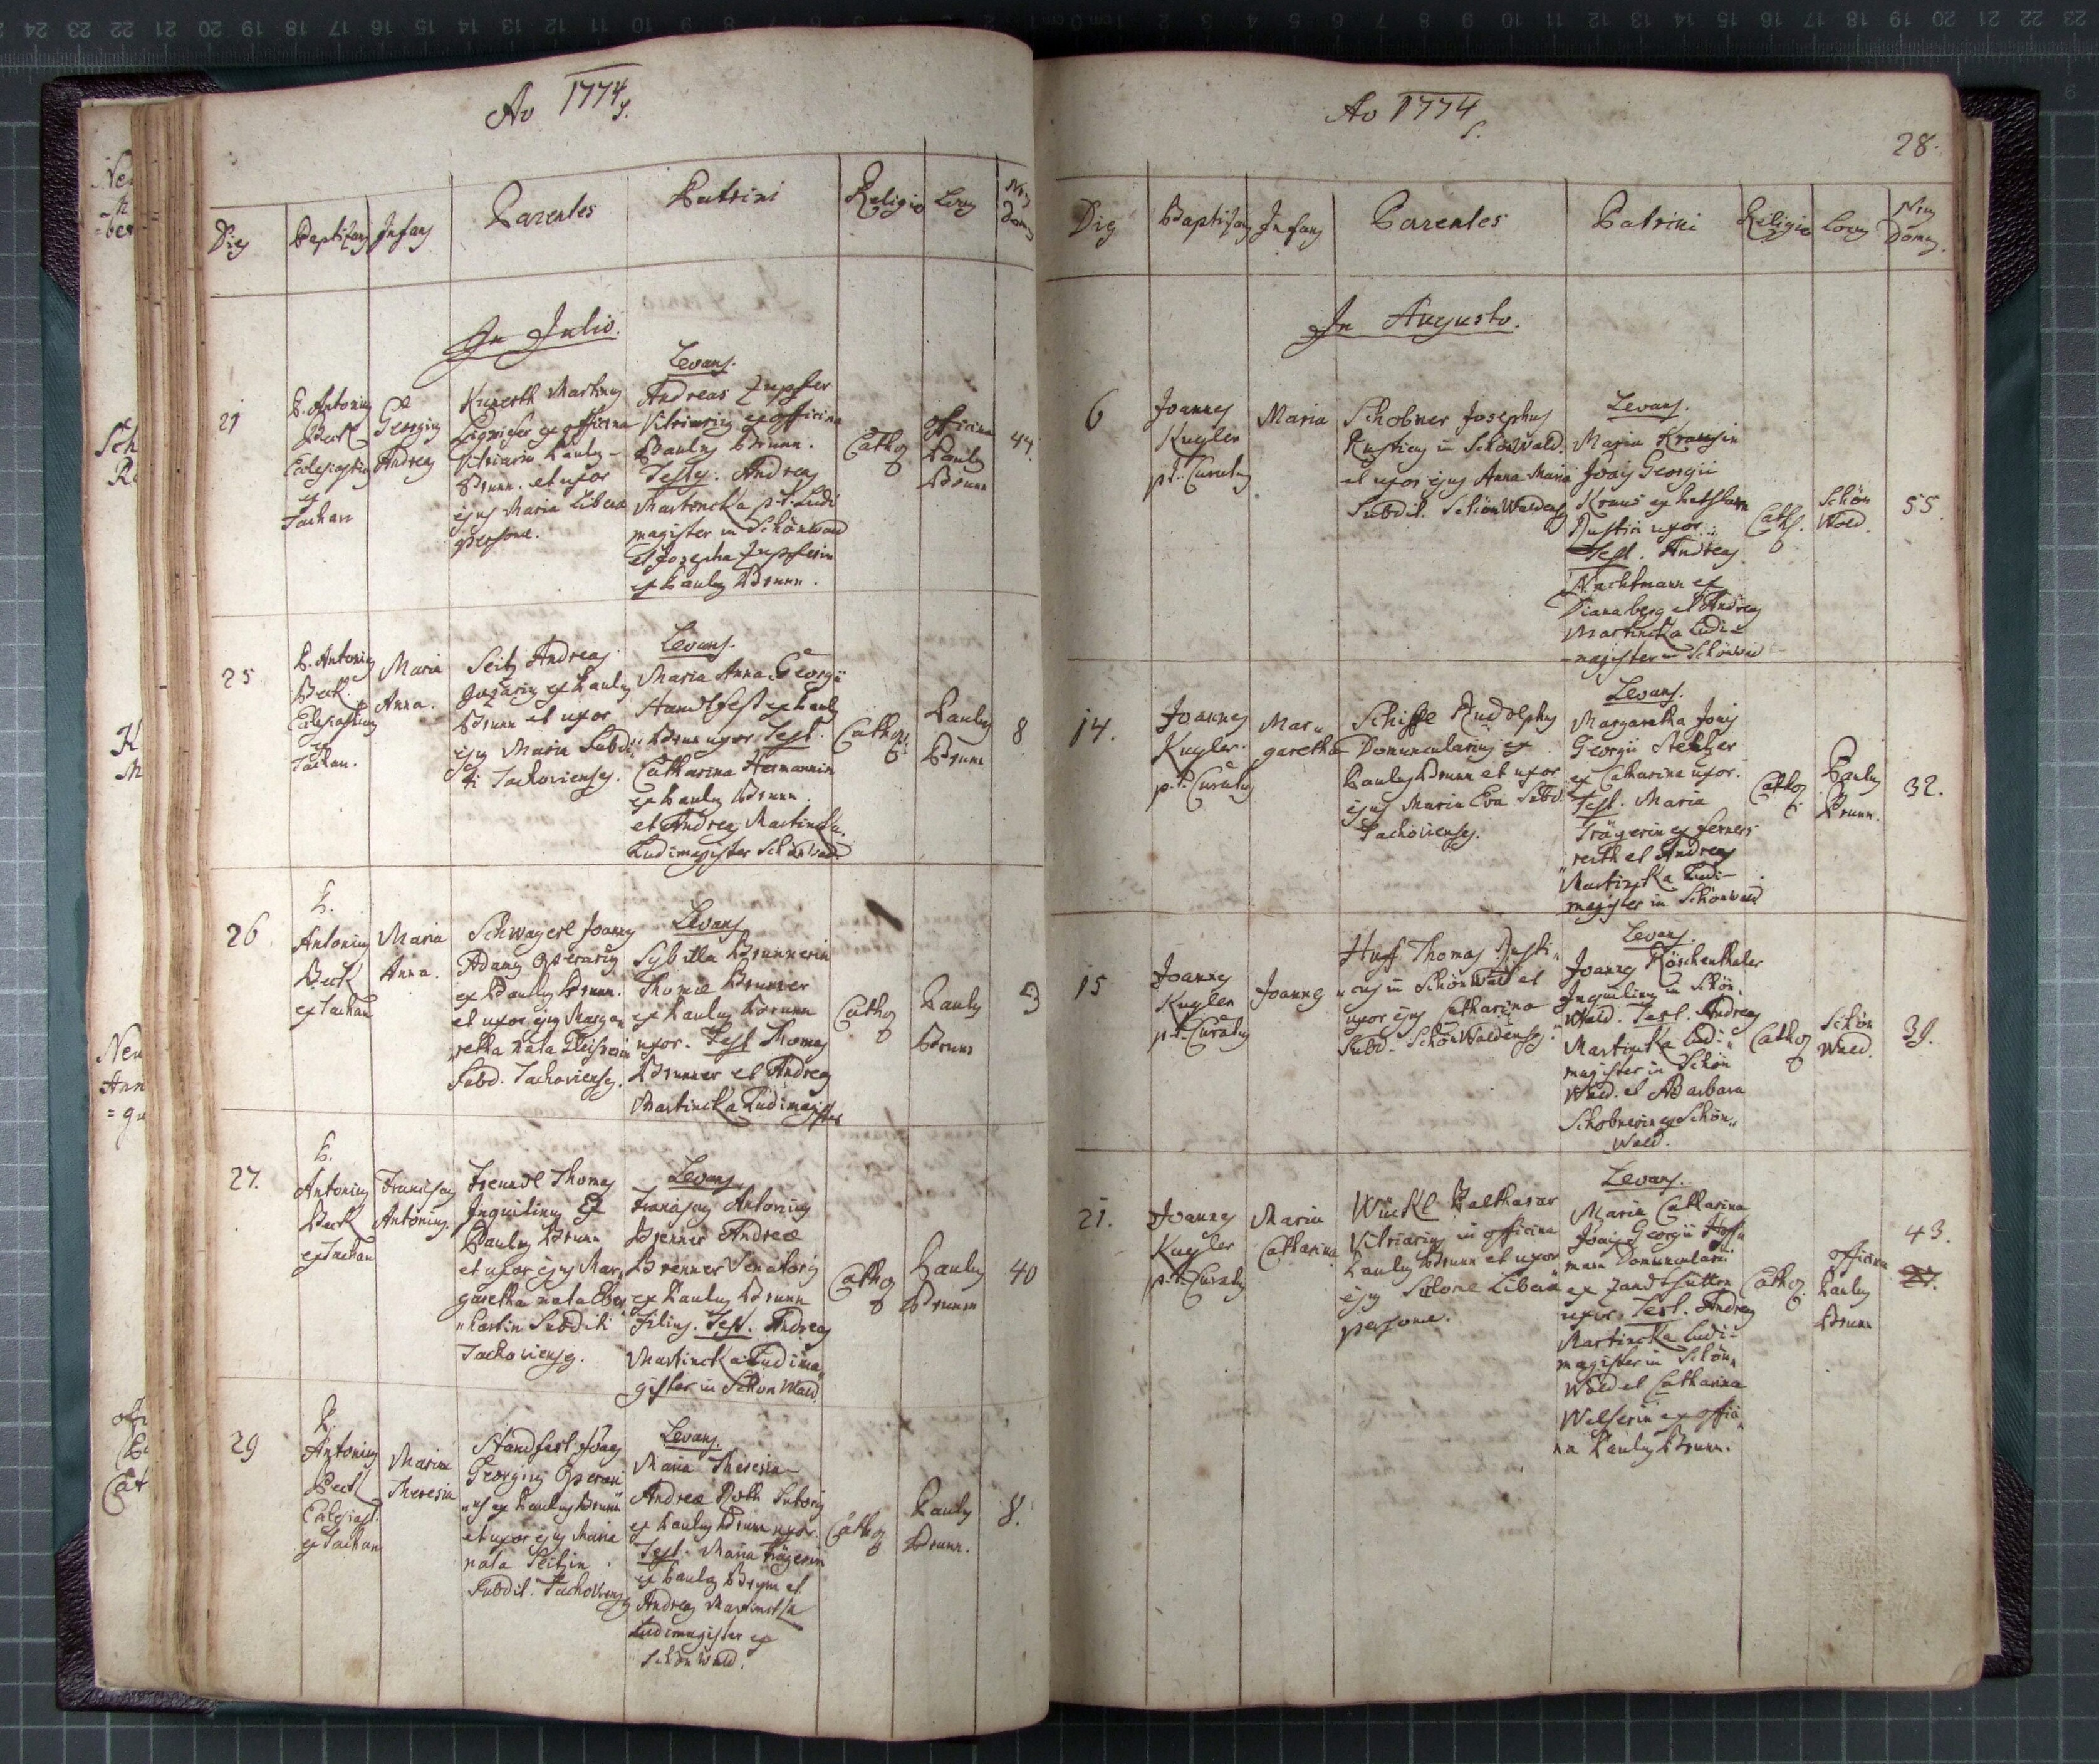 Ao 1774
Dies Baptizans Infans Parentes Patrini Religio Locus Nrus Domus
In Julio.
21
P. Antonius
Beck
ex
Tachau
Georgius
Andreas
Kunerth Martinus
ex officina
Vitriaria Paulus-
Brunn. et uxor
ejus Maria Libera
persona.
Levans.
Andreas Zupfer
Vitriarius ex officina
Paulus Brunn.
Testes. Andreas
Martincka p.t. Ludi
magister in Schönwald
et Josepha Zupferin
ex Paulus Brunn.
Cathos
officina
Paulus
Brunn
44.
25
P. Antonius
Beck
Ecclesiasticus
ex
Tachau.
Maria
Anna.
Seitz Andreas
ex Paulus
Brunn et uxor
ejus Maria Subdi-
ti Tachovienses.
Levans.
Maria Anna Georgii
Standfest ex Paulus
Brunn uxor. Test.
Catharina Hermannin
ex Paulus Brunn
et Andreas Martincka
Ludimagister Schönwald
Cathos
Paulus
Brunn
8
26
P.
Antonius
Beck
ex Tachau
Maria
Anna.
Schwagerl Joannes
Adamus operarius
ex Paulus Brunn.
et uxor ejus Marga-
retha nata
Subd. Tachovienses.
Levans
Sybilla Brunnerin
Thomæ Brunner
ex Paulus Brunn
uxor. Test Thomas
Brunner et Andreas
Martincka Ludimagister
Cathos
Paulus
Brunn
3
27.
P.
Antonius
Beck
ex Tachau
Franciscus
Antonius.
Thomas
Inquilinus Ex
Paulus Brunn
et uxor ejus Mar-
garetha nata Eber-
hartin Subditi
Tachovienses.
Levans
Franciscus Antonius
Brenner Andreæ
Brenner Senatoris
ex Paulus Brunn
Filius. Test. Andreas
Martincka Ludima-
gister in Schönwald.
Cathos
Paulus
Brunn
40
29
P.
Antonius
Beck
Ecclesiast.
ex Tachau
Maria
Theresia
Standfest Joães
Georgius operari-
us ex Paulus Brunn
et uxor ejus Maria
nata Seitzin
Subdit. Tachovienses
Levans.
Maria Theresia
Andreæ Roth Sutoris
ex Paulus Brunn uxor.
Test. Maria Trägerin
ex Paulus Brunn et
Andreas Martincka
Ludimagister ex
Schönwald.
Cathos
Paulus
Brunn.
8.
Ao 1774
28.
Dies Baptizans Infans Parentes Patrini Religio Locus Nrus Domus.
In Augusto.
6
Joannes
Kugler
p.t. Curatus
Maria
Schobner Josephus
Rusticus in Schönwald.
et uxor ejus Anna Maria
Subdit. Schönwaldenses
Levans.
Maria Krausin
Joais Georgii
Kraus ex
Rustici uxor.
Test. Andreas
Nachtmann ex
Dianaberg et Andreas
Martincka Ludi-
magister in Schönwald
Cath.
Schön
Wald.
55.
14.
Joannes
Kugler.
p.t. Curatus
Mar-
garetha
Schiffl Rudolphus
Domuncularius ex
Paulus Brunn et uxor
ejus Maria Eva Subd.
Tachovienses.
Levans.
Margaretha Jonis
Georgii Meltzer
ex Catharina uxor.
Test. Maria
Trägerin ex Ferners-
reith et Andreas
Martincka Ludi-
magister in Schönwald
Cathos
Paulus
Brunn.
32.
15
Joannes
Kugler
p.t. Curatus
Joannes
Huff Thomas Rusti-
cus in Schönwald et
uxor ejus Catharina
Subd. Schönwaldenses.
Levans.
Joannes Röschenthaler
Inquilinus in Schön-
Wald. Test. Andreas
Martincka Ludi-
magister in Schön
Wald. et Barbara
Schobnerin ex Schön-
Wald.
Cathos
Schön
Wald.
39.
21.
Joannes
Kugler
p.t. Curatus
Maria
Catharina
Winckl Balthasar
Vitriarius in officina
Paulus Brunn et uxor
ejus Salome Liberæ
personæ.
Levans.
Maria Catharina
Joais Georgii Hoff-
mann Domuncularii
ex Zandthütten
uxor. Test. Andreas
Martincka Ludi-
magister in Schön-
Wald et Catharina
Welserin ex offici-
na Paulus Brunn.
Cathos
officina
Paulus
Brunn
43.